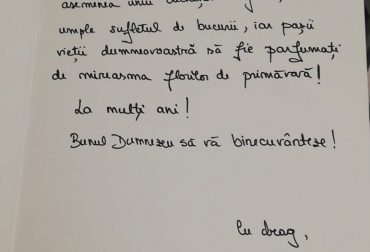 asemenea unui
umple sufletul de bucurii, iar pașii
vieții dumneavoastră să fie parfumați
de mireasma florilor de primăvară!
La mulți ani!
Bunul Dumnezeu să vă binecuvânteze!
Cu drag,